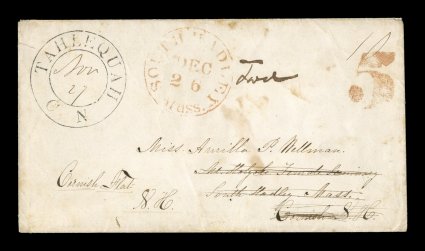 TAHLEQUAH
Nov
27
C N
SOUTH HADLEY
DEC
26
Mass.
Fwd
10
5
Miss Aurilla P. Wellman.
Mt Holyoke Female Seminary
South Hadley Mass.
Cornish N. H.
Cornish Flat.
N. H.